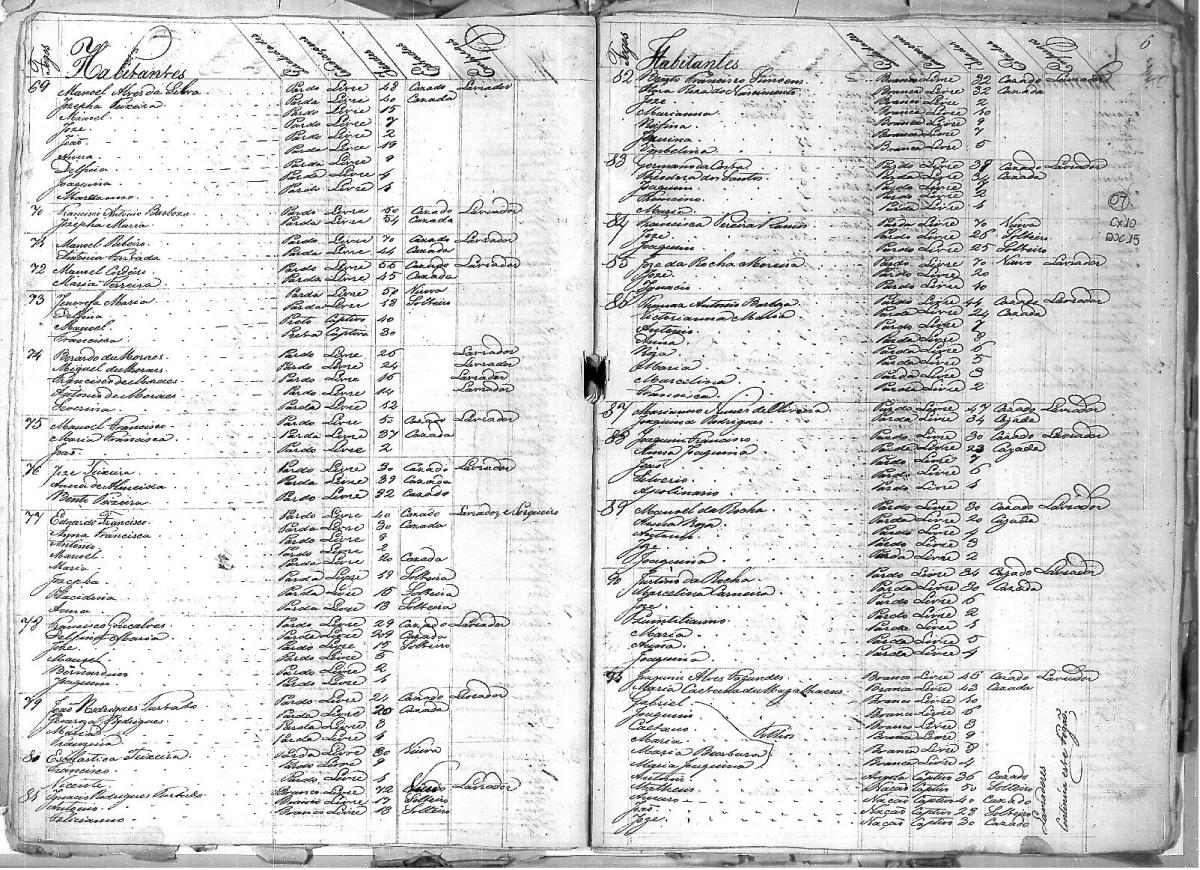 Fogos Habitantes Qualidades Condiçoens Idades Estados
69 Manoel Alves da Silva Pardo Livre 43 Cazado Lavrador
Jozepha Teixeira Parda Livre 40 Cazada
Manoel Pardo Livre 15
Joze Pardo Livre 7
João Pardo Livre 2
Anna Parda Livre 19
Delfina Parda Livre 9
Joaquina Parda Livre 4
Marianno Pardo Livre
70 Francisco Antonio Barboza Pardo Livre 60 Cazado Lavrador
Jozepha Maria Parda Livre 54 Cazada
71 Manoel Ribeiro Pardo Livre 70 Cazado Lavrador
Antonia Parda Livre 44 Cazada
72 Manoel Cordeiro Pardo Livre 55 Cazado Lavrador
Maria Ferreira Parda Livre 45 Cazada
73 Jenovefa Maria Parda Livre 50 Viuva
Delfina Parda Livre 18 Solteira
Manoel Preto Captivo 40
Francisca Preta Captiva 30
74 Berardo de Moraes Pardo Livre 26 Lavrador
Miguel de Moraes Pardo Livre 24 Lavrador
Francisco de Moraes Pardo Livre 16 Lavrador
Antonio de Moraes Pardo Livre 14 Lavrador
Severina Parda Livre 12
75 Manoel Francisco Pardo Livre 50 Cazado Lavrador
Maria Francisca Parda Livre 37 Cazada
João Pardo Livre 2
76 Joze Teixeira Pardo Livre 30 Cazado Lavrador
Anna de Almeida Parda Livre 39 Cazada
Bento Teixeira Pardo Livre 32 Cazado
77 Eduardo Francisco Pardo Livre 40 Cazado Lavrador e
Anna Francisca Parda Livre 30 Cazada
Antonio Pardo Livre 8
Manoel Pardo Livre 2
Maria Parda Livre 20 Cazada
Jozepha Parda Livre 19 Solteira
Placidina Parda Livre 15 Solteira
Anna Parda Livre 13 Solteira
78 Francisco Gonçalves Pardo Livre 29 Cazado Lavrador
Delfina Maria Parda Livre 29 Cazada
Joze Pardo Livre 15 Solteiro
Manoel Pardo Livre 5
Bernardino Pardo Livre 2
Joaquim Pardo Livre 1
79 João Rodrigues Furtado Pardo Livre 24 Cazado Lavrador
Rodrigues Parda Livre 20 Cazada
Parda Livre 3
Parda Livre 1
80 Escolastica Teixeira Parda Livre 30 Viuva
Francisco Pardo Livre 9
Vicente Pardo Livre 4
81 Ignacio Rodrigues Furtado Branco Livre 72 Viuvo Lavrador
Antonio Branco Livre 17 Solteiro
Felizianno Branco Livre 18 Solteiro
6
Fogos Habitantes
82 Bento Francisco Branco Livre 32 Cazado Lavrador
Roza do Nascimento Branca Livre 32 Cazada
Joze Branco Livre 2
Marianna Branca Livre 10
Rufina Branca Livre 9
Branca Livre 7
Umbelina Branca Livre 5
83 Germano da Costa Pardo Livre 38 Cazado Lavrador
Theodora dos Santos Parda Livre 34 Cazada
Joaquim Pardo Livre 7
Pardo Livre 2
Maria Parda Livre 4
84 Francisca Pereira Parda Livre 70 Viuva
Joze Pardo Livre 26 Solteiro
Joaquim Pardo Livre 25 Solteiro
85 Joze da Rocha Moreira Pardo Livre 70 Viuvo Lavrador
Joze Pardo Livre 20
Ignacio Pardo Livre 10
86 Thomaz Antonio Barboza Pardo Livre 44 Cazado Lavrador
Victorianna Maria Parda Livre 24 Cazada
Antonio Pardo Livre 7
Anna Parda Livre 8
Roza Parda Livre 6
Maria Parda Livre 5
Marcelina Parda Livre 3
Francisca Parda Livre 2
87 Marianno Nunes de Oliveira Pardo Livre 47 Cazado Lavrador
Joaquina Rodrigues Parda Livre 34 Cazada
88 Joaquim Francisco Pardo Livre 30 Cazado Lavrador
Anna Joaquina Parda Livre 23 Cazada
João Pardo Livre 7
Silverio Pardo Livre 6
Apolinario Pardo Livre 4
89 Manoel da Rocha Pardo Livre 30 Cazado Lavrador
Roza Parda Livre 20 Cazada
Antonio Pardo Livre 4
Joze Pardo Livre 3
Joaquina Parda Livre 2
90 Justino da Rocha Pardo Livre 34 Cazado Lavrador
Marcelina Carneira Parda Livre 30 Cazada
Joze Pardo Livre 6
Quintilianno Pardo Livre 2
Maria Parda Livre 1
Anna Parda Livre 5
Joaquina Parda Livre 4
91 Joaquim Alves Fagundes Branco Livre 46 Cazado Lavrador
Maria Caetana de Magalhaens Branca Livre 43 Cazada
Gabriel Branco Livre 10
Joaquim Branco Livre 6
Caetano Branco Livre 3
Maria Branca Livre 9
Maria Barbara Branca Livre 8
Maria Joaquina Branca Livre 4
Filhos
Antonio Angola Captivo 36 Cazado
Matheus Nação Captivo 50 Solteiro
Amaro Nação Captivo 40 Cazado
João Nação Captivo 28 Solteiro
Joze Nação Captivo 30 Cazado
Lavradores
Continúa este fogão
07
CX10
DOC15